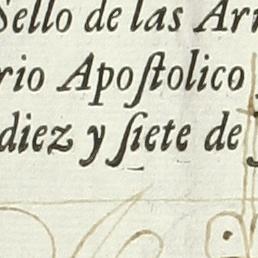 Sello de las Ar
rio Apoſtolico
diez y ſiete de